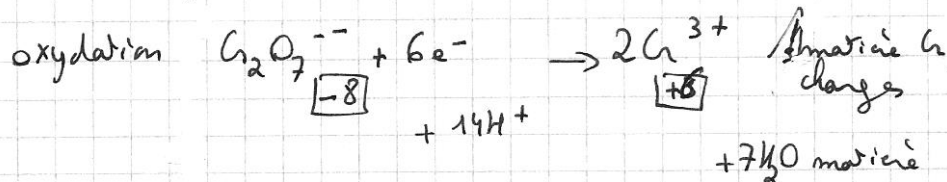 oxydation Cr₂O₇⁻⁻ + 6e⁻ → 2Cr³⁺ matière Cr
-8 +6 charges
+ 14H⁺
+7H₂O matière